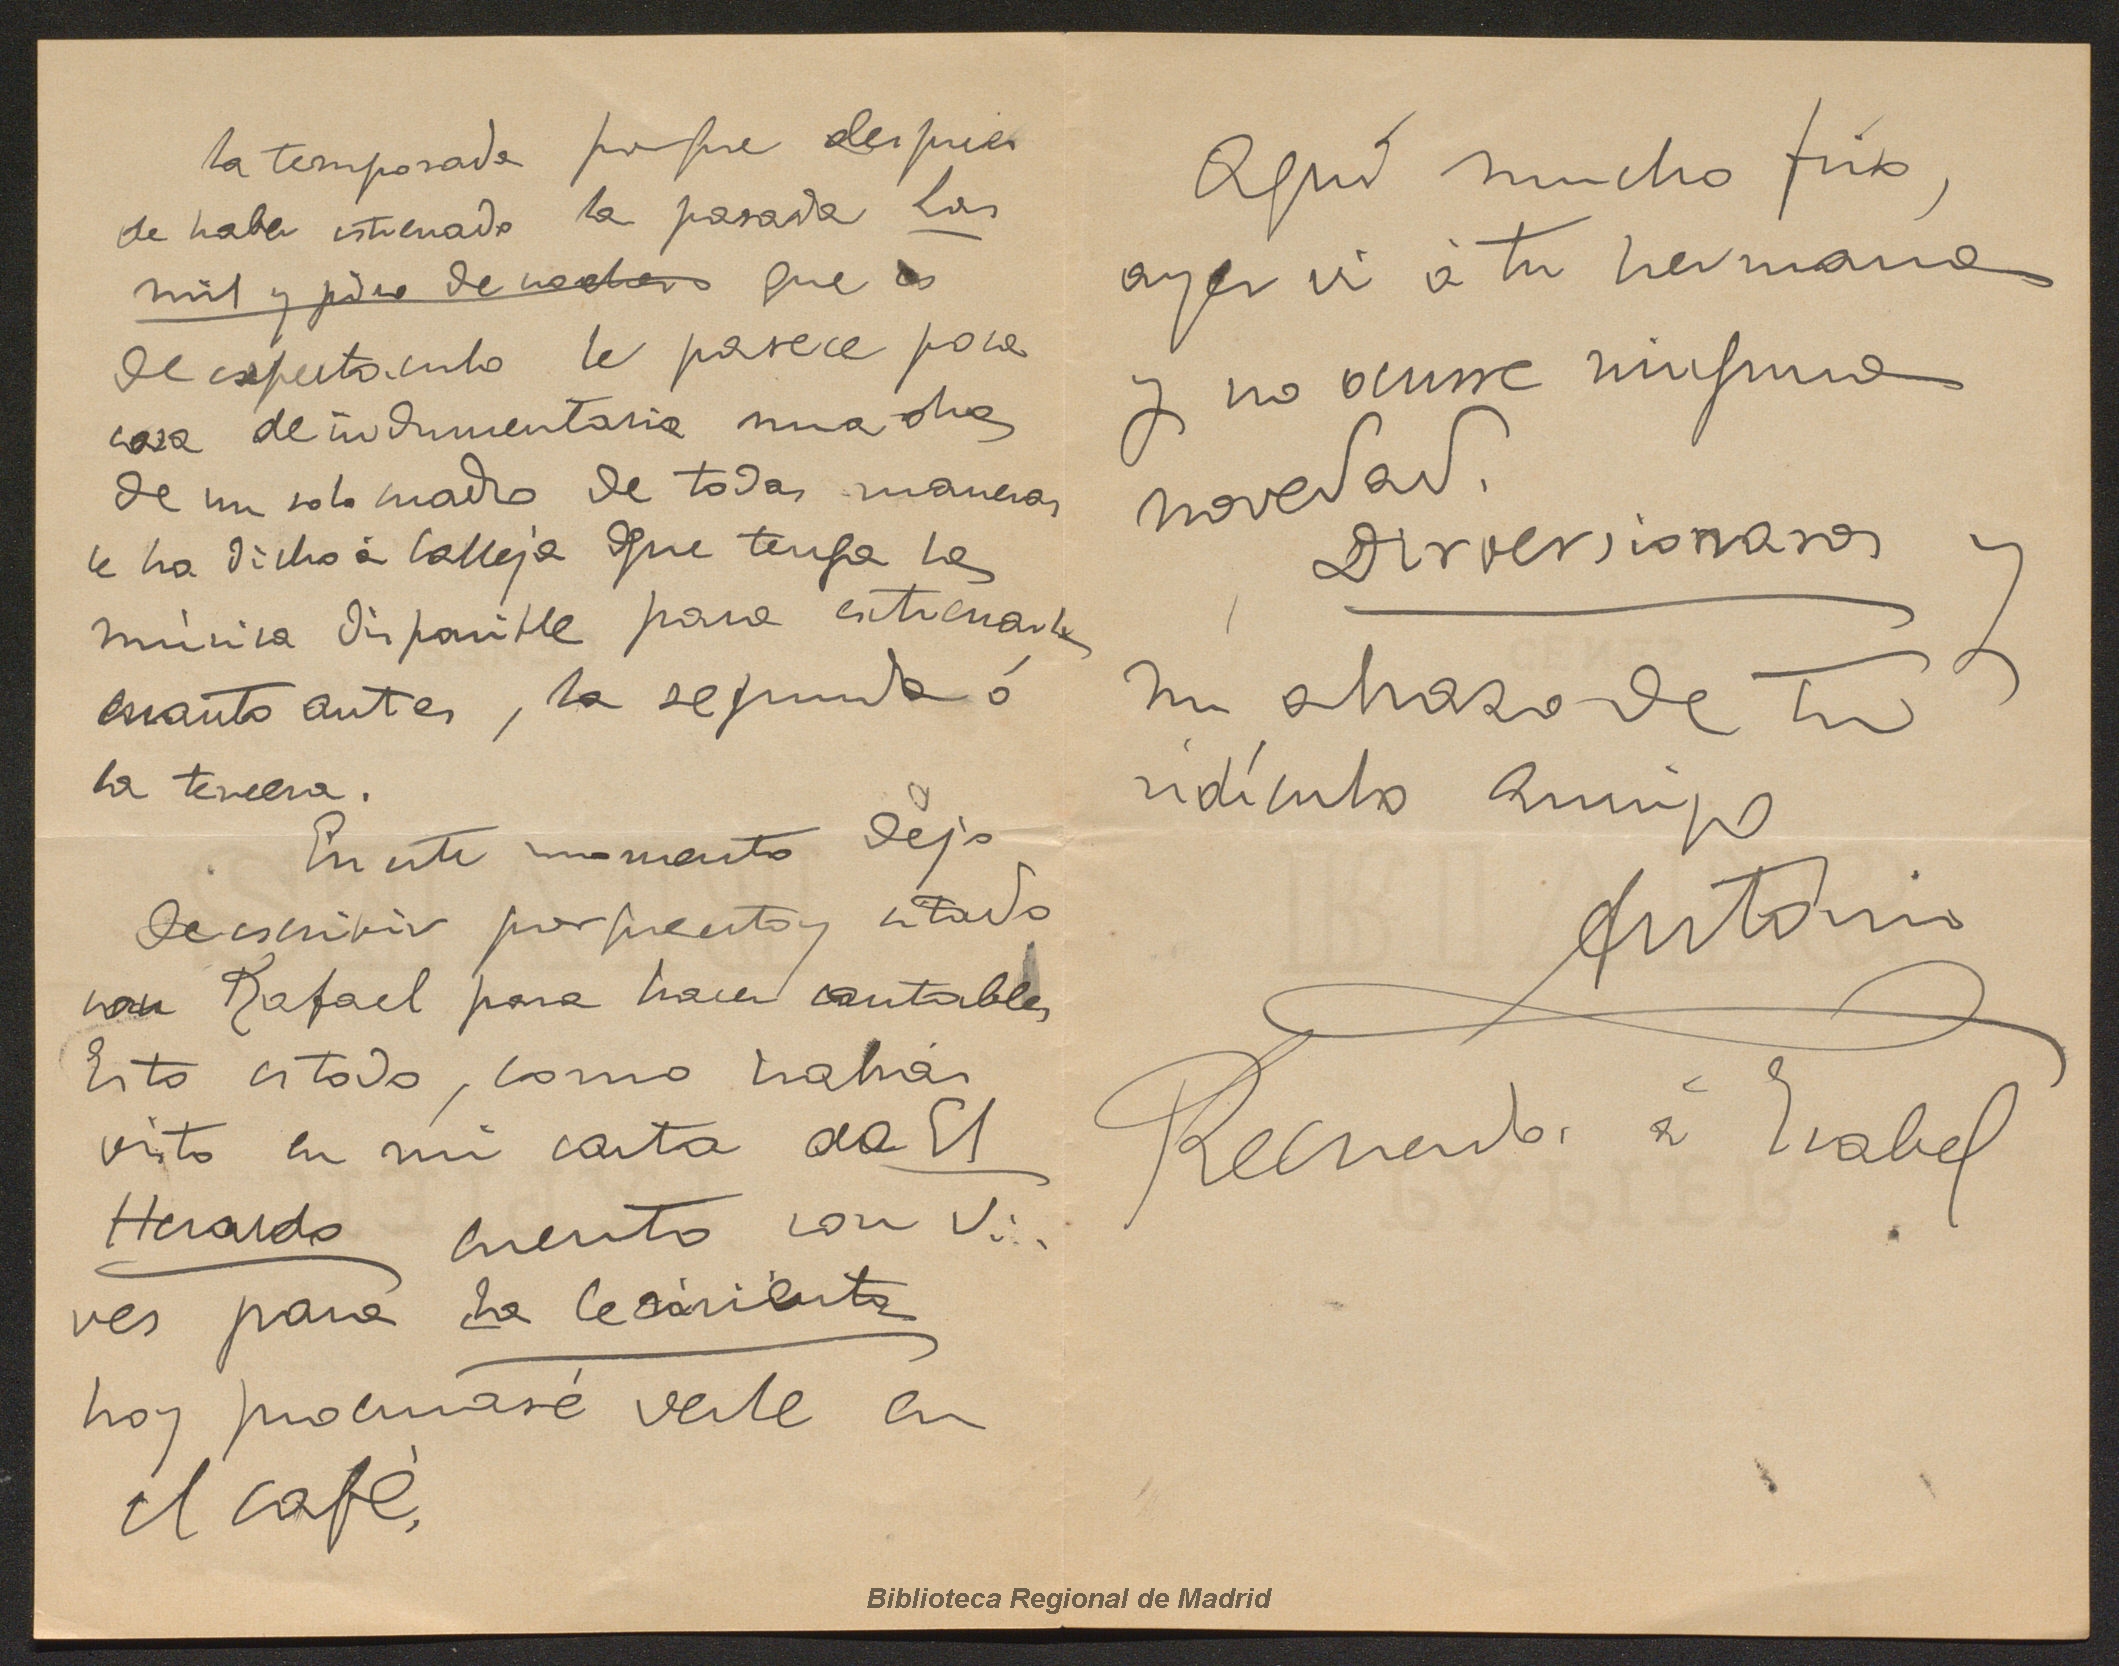 la temporada porque despues
de haber estrenado la pasada Las
mil y pico de noches que es
de espectaculo le parece poca
cosa de indumentaria una obra
de un solo cuadro de todas maneras
le ha dicho á Calleja que tenga la
música disponible para estrenarla
cuanto antes, la segunda ó
la tercera.
En este momento dejo
de escribir porque estoy citado
con Rafael para hacer cantables
Esto es todo, como habrás
visto en mi carta de El
Heraldo cuento con Vi-
ves para La Cenicienta
hoy procuraré verle en
el café.
Aquí mucho frío,
ayer vi á tu hermana
y no ocurre ninguna
novedad.
y
un abrazo de tu
ridículo amigo
Antonio
Recuerdos á Isabel
Biblioteca Regional de Madrid